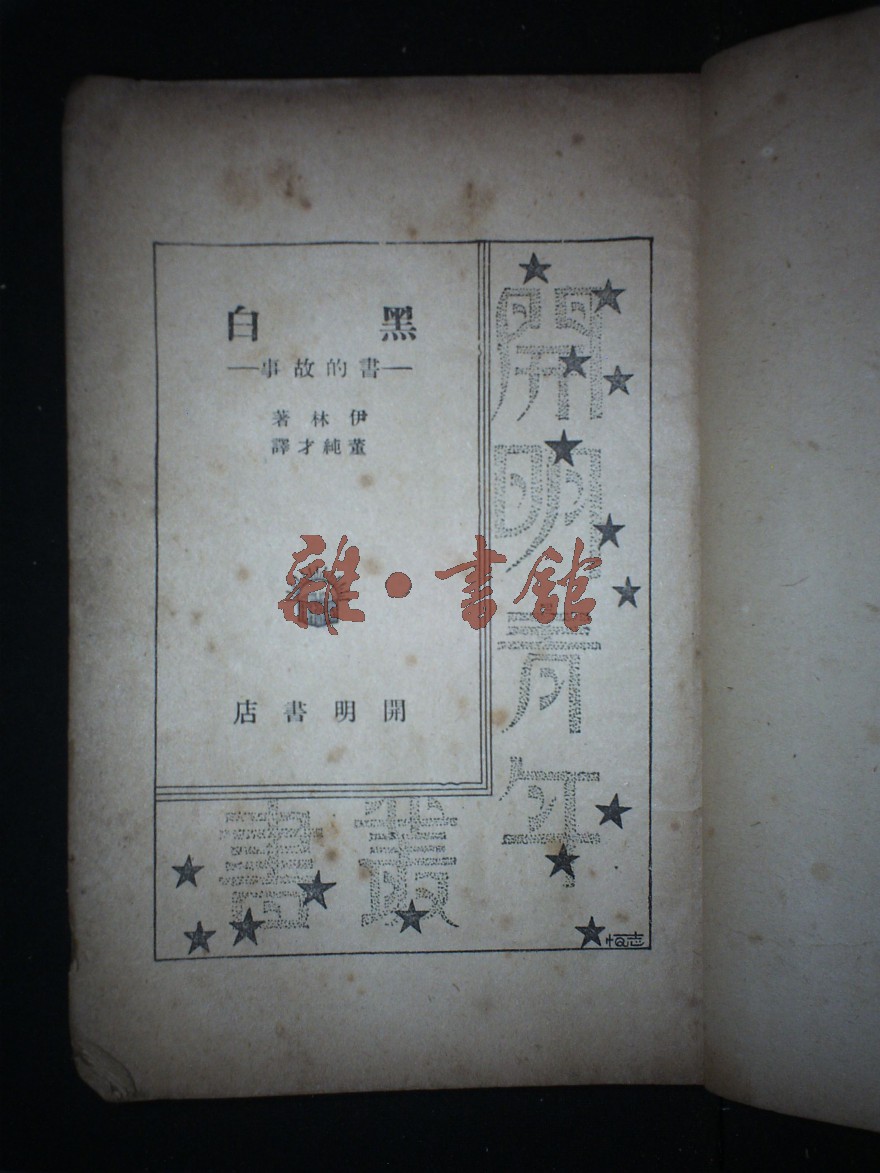 黑白
—書的故事—
伊林著
董純才譯
開明書店
開明青年
叢書
志恒
雜·書舘